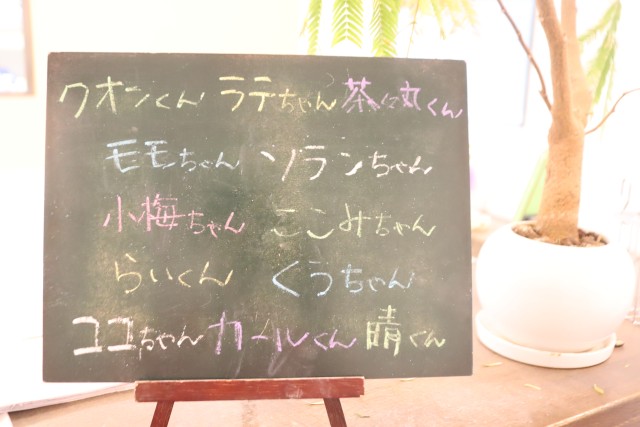 クオンくん ラテちゃん 茶々丸くん
モモちゃん ソランちゃん
小梅ちゃん ここみちゃん
らいくん くうちゃん
ココちゃん カールくん 晴くん